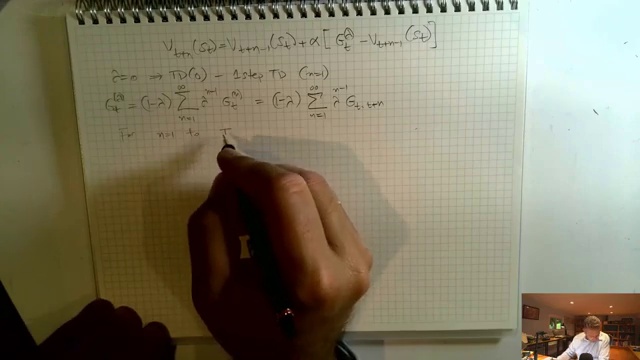 V_{t+n}(S_t) = V_{t+n-1}(S_t) + α [ G_t^{(λ)} - V_{t+n-1}(S_t) ]
λ=0 ⇒ TD(0) - 1 step TD (n=1)
G_t^{(λ)} = (1-λ) ∑_{n=1}^{∞} λ^{n-1} G_t^{(n)} = (1-λ) ∑_{n=1}^{∞} λ^{n-1} G_{t,t+n}
For n=1 to T